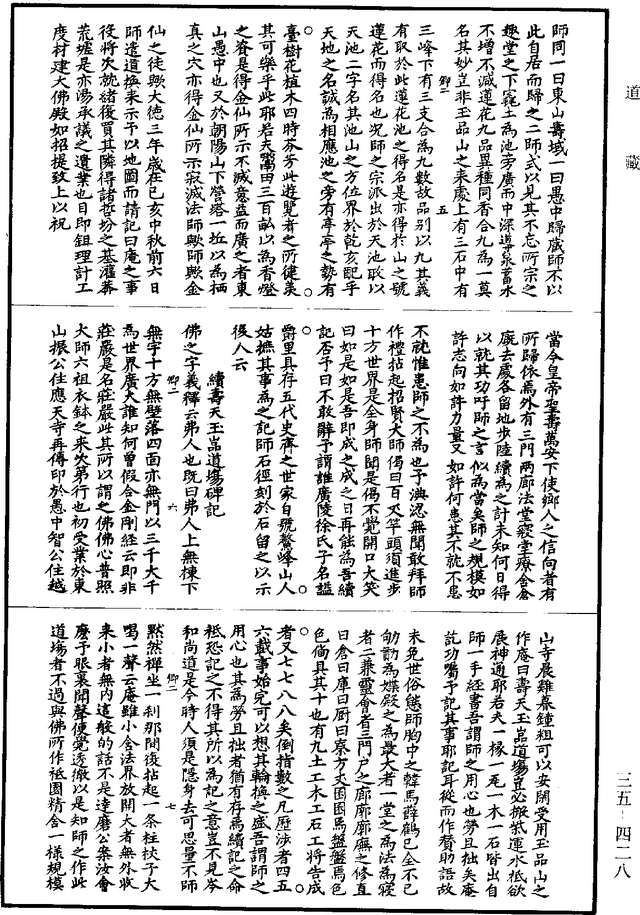 道藏
師同一曰東山壽域一曰愚中歸歲師不以
此自居而歸之二師式以見其不忘所宗之
趣堂之下甃土為池旁廣而中深導泉蓄水
不增不減蓮花九品異種同香合九為一莫
名其妙豈非玉品山之來處上有三石中有
卿二 五
三峰下有三支合為九數故品別以九其義
有取於此蓮花池之得名是亦得於山之號
蓮花而得名也況師之宗派出於天池取以
天池二字名其池山之方位界於乾亥配乎
天地之名誠為相應池之旁有亭亭之勢有
臺樹花植木四時芬芳此遊覽者之所健羨
其可樂乎此耶若夫鬻田三百畝以為香燈
之資是得金仙所示不滅意益而廣之者東
山愚中也又於朝陽山下營塔一坵以為栖
真之穴亦得金仙所示寂滅法師歟師歟金
仙之徒歟大德三年歲在已亥中秋前六日
師遣道振來示予以地圖而請記曰庵之事
役將次就緒後買其隣得諸哲坊之基灌莽
荒墟是亦湯承議之遺業也目即鉏理計工
度材建大佛殿如招提致上以祝
當今皇帝聖壽萬安下使鄉人之信向者有
所歸依焉外有三門兩廊法堂寢堂寮舍倉
廐去處各留地步陸續為之計未知何日得
以就其功吁師之言似為當矣師之規模如
許志向如許力量又如許何患其不就不患
不就惟患師之不為也予淟涊無聞敢拜師
作禮拈起招賢大師偈曰百尺竿頭須進步
十方世界是全身師聞是偈不覺開口大笑
曰如是如是吾即成之成之日再能為吾續
記否予曰不敢辭子謂誰廣陵徐氏子名謚
爵里具存五代史齊之世家自號鰲峰山人
姑摭其事為之記師石徑刻於石留之以示
後人云
續壽天玉㗊道場碑記
佛之字義釋云弗人也既曰弗人上無棟下
卿二 六
無宇十方無壁落四面亦無門以三千大千
為世界廣大誰知何曾假合金剛經云即非
莊嚴是名莊嚴此其所以謂之佛佛心普照
大師六祖衣鉢之來次第行也初受業於東
山振公住應天寺再傳印於愚中智公住越
山寺晨雞暮鐘粗可以安閑受用玉品山之
作庵曰壽天玉㗊道場豈必搬柴運水祗欲
展神通耶若夫一椽一瓦一木一石皆出自
師一手經畫吾謂師之用心也勞且拙矣庵
訖功囑予記其事耶記耳從而作贊助語故
未免世俗態師胸中之韓馬薛鶴已全不已
劬劬為媒殿之為最大者一堂之為法為寢
者二兼靈會者三門戶之廊廊廓廡之修直
曰倉曰庫曰厨曰寮方丈囷囷馬盤盤焉色
色備具其十也有九土工木工石工將告成
者又七七八八矣倒指數之凡歷涉者四五
六載事始完可以想其輪換之盛吾謂師之
用心也其為勞且拙者猶有存焉續記之命
祗恐記之不得其所以為記之意豈不見岑
和尚道是今時人須是隱身去可思量不師
卿二 七
默然禪坐一剎那間復拈起一條柱杖子大
喝一聲云庵雖小含法界放開大者無外收
來小者無內這般的話不是達磨公案汝會
麽予眼裏聞聲便覺透徹以是知師之作此
道場者不過與佛所作祗園精舍一樣規模
三五-四二八